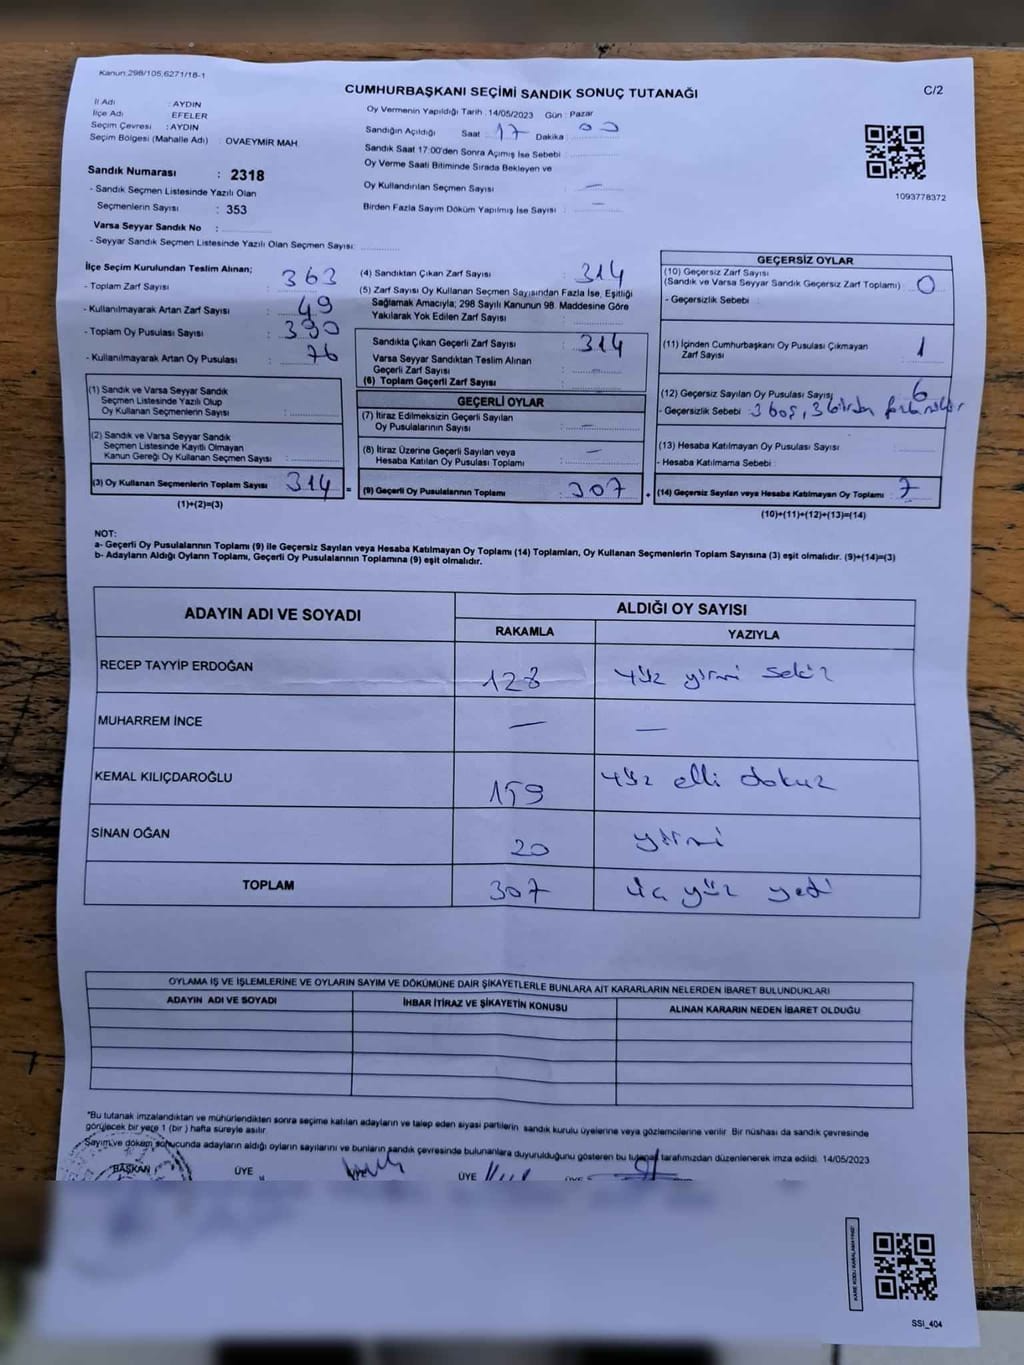 Kanun:298/105,6271/18-1
CUMHURBAŞKANI SEÇİMİ SANDIK SONUÇ TUTANAĞI
C/2
İl Adı : AYDIN
İlçe Adı : EFELER
Seçim Çevresi : AYDIN
Seçim Bölgesi (Mahalle Adı) : OVAEYMİR MAH.
Oy Vermenin Yapıldığı Tarih :14/05/2023 Gün : Pazar
Sandığın Açıldığı Saat : 17 Dakika : 00
Sandık Saat 17:00'den Sonra Açımış İse Sebebi :
Oy Verme Saati Bitiminde Sırada Bekleyen ve
Oy Kullandırılan Seçmen Sayısı : —
Birden Fazla Sayım Döküm Yapılmış İse Sayısı : —
1093778372
Sandık Numarası : 2318
- Sandık Seçmen Listesinde Yazılı Olan
Seçmenlerin Sayısı : 353
Varsa Seyyar Sandık No :
- Seyyar Sandık Seçmen Listesinde Yazılı Olan Seçmen Sayısı:
İlçe Seçim Kurulundan Teslim Alınan;
- Toplam Zarf Sayısı : 363
- Kullanılmayarak Artan Zarf Sayısı : 49
- Toplam Oy Pusulası Sayısı : 390
- Kullanılmayarak Artan Oy Pusulası : 76
(1) Sandık ve Varsa Seyyar Sandık
Seçmen Listesinde Yazılı Olup
Oy Kullanan Seçmenlerin Sayısı :
(2) Sandık ve Varsa Seyyar Sandık
Seçmen Listesinde Kayıtlı Olmayan
Kanun Gereği Oy Kullanan Seçmen Sayısı :
(3) Oy Kullanan Seçmenlerin Toplam Sayısı 314 =
(1)+(2)=(3)
(4) Sandıktan Çıkan Zarf Sayısı : 314
(5) Zarf Sayısı Oy Kullanan Seçmen Sayısından Fazla İse, Eşitliği
Sağlamak Amacıyla; 298 Sayılı Kanunun 98. Maddesine Göre
Yakılarak Yok Edilen Zarf Sayısı :
Sandıkta Çıkan Geçerli Zarf Sayısı : 314
Varsa Seyyar Sandıktan Teslim Alınan
Geçerli Zarf Sayısı : —
(6) Toplam Geçerli Zarf Sayısı :
GEÇERLİ OYLAR
(7) İtiraz Edilmeksizin Geçerli Sayılan
Oy Pusulalarının Sayısı : —
(8) İtiraz Üzerine Geçerli Sayılan veya
Hesaba Katılan Oy Pusulası Toplamı : —
(9) Geçerli Oy Pusulalarının Toplamı 307 +
GEÇERSİZ OYLAR
(10) Geçersiz Zarf Sayısı
(Sandık ve Varsa Seyyar Sandık Geçersiz Zarf Toplamı) : 0
- Geçersizlik Sebebi :
(11) İçinden Cumhurbaşkanı Oy Pusulası Çıkmayan
Zarf Sayısı : 1
(12) Geçersiz Sayılan Oy Pusulası Sayısı 6
- Geçersizlik Sebebi : 3 boş, 3 birden
(13) Hesaba Katılmayan Oy Pusulası Sayısı :
- Hesaba Katılmama Sebebi :
(14) Geçersiz Sayılan veya Hesaba Katılmayan Oy Toplamı : 7
(10)+(11)+(12)+(13)=(14)
NOT:
a- Geçerli Oy Pusulalarının Toplamı (9) ile Geçersiz Sayılan veya Hesaba Katılmayan Oy Toplamı (14) Toplamları, Oy Kullanan Seçmenlerin Toplam Sayısına (3) eşit olmalıdır. (9)+(14)=(3)
b- Adayların Aldığı Oyların Toplamı, Geçerli Oy Pusulalarının Toplamına (9) eşit olmalıdır.
ADAYIN ADI VE SOYADI
ALDIĞI OY SAYISI
RAKAMLA YAZIYLA
RECEP TAYYİP ERDOĞAN 128 yüz yirmi sekiz
MUHARREM İNCE — —
KEMAL KILIÇDAROĞLU 159 yüz elli dokuz
SİNAN OĞAN 20 yirmi
TOPLAM 307 üç yüz yedi
OYLAMA İŞ VE İŞLEMLERİNE VE OYLARIN SAYIM VE DÖKÜMÜNE DAİR ŞİKAYETLERLE BUNLARA AİT KARARLARIN NELERDEN İBARET BULUNDUKLARI
ADAYIN ADI VE SOYADI İHBAR İTİRAZ VE ŞİKAYETİN KONUSU ALINAN KARARIN NEDEN İBARET OLDUĞU
*Bu tutanak imzalandıktan ve mühürlendikten sonra seçime katılan adayların ve talep eden siyasi partilerin sandık kurulu üyelerine veya gözlemcilerine verilir. Bir nüshası da sandık çevresinde
görülecek bir yere 1 (bir ) hafta süreyle asılır.
Sayım ve döküm sonucunda adayların aldığı oyların sayılarını ve bunların sandık çevresinde bulunanlara duyurulduğunu gösteren bu tutanak tarafımızdan düzenlenerek imza edildi. 14/05/2023
BAŞKAN ÜYE ÜYE
KARE KODU KARALAMAYINIZ!
SSI_404